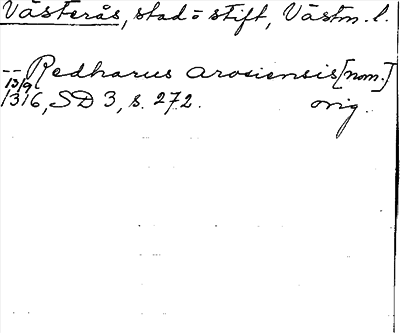 Västerås, stad o stift, Västm. l.
-- Redharus arosiensis [nom.]
13/9
1316, SD 3, s. 272. orig.